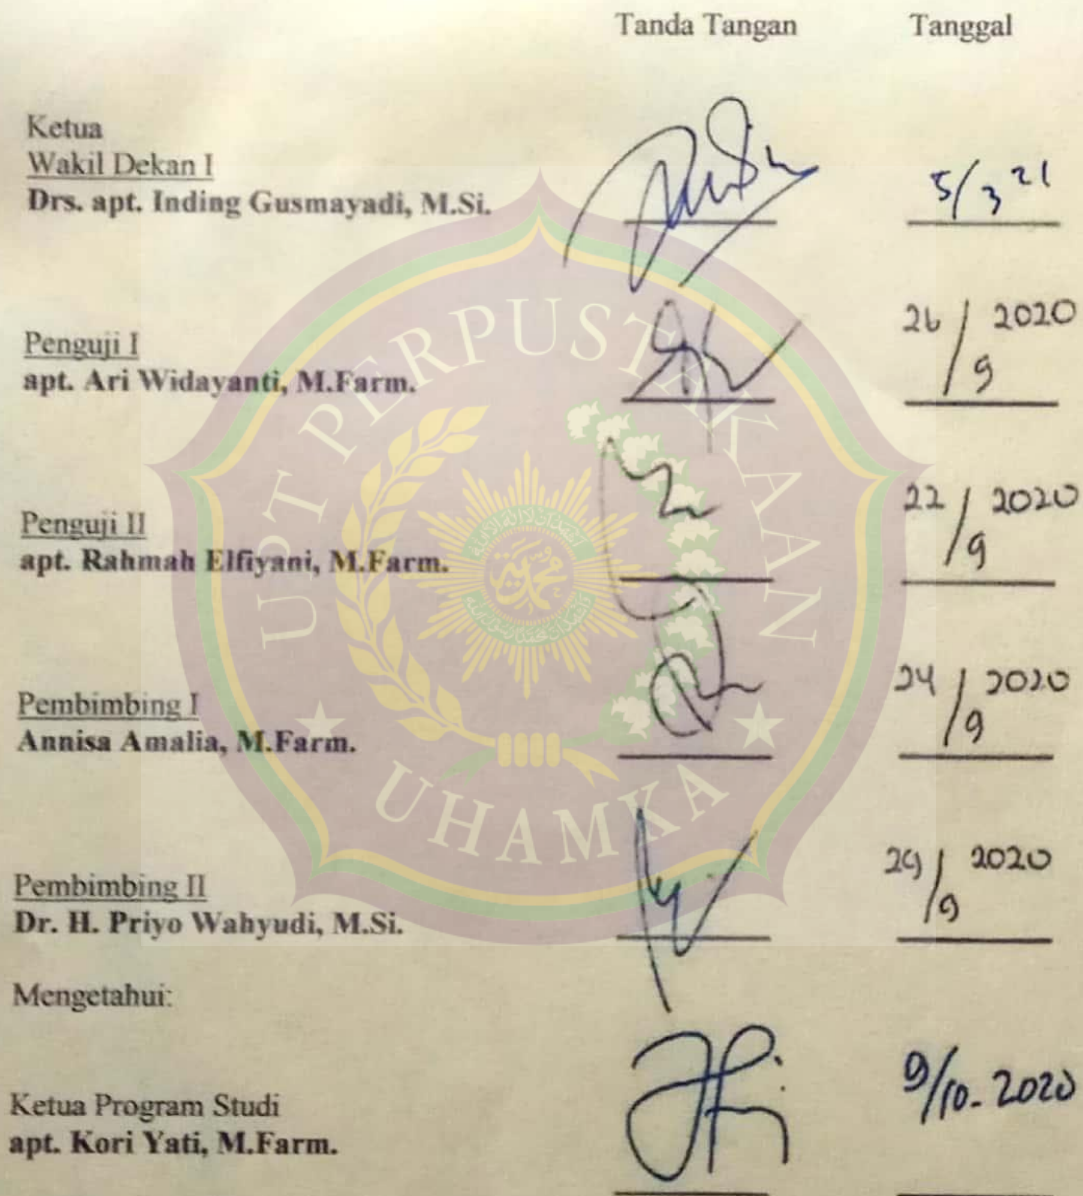 Tanda Tangan Tanggal
Ketua
Wakil Dekan I
Drs. apt. Inding Gusmayadi, M.Si. 5/3 21
Penguji I
apt. Ari Widayanti, M.Farm. 26/9 2020
Penguji II
apt. Rahmah Elfiyani, M.Farm. 22/9 2020
Pembimbing I
Annisa Amalia, M.Farm. 24/9 2020
Pembimbing II
Dr. H. Priyo Wahyudi, M.Si. 29/9 2020
Mengetahui:
Ketua Program Studi
apt. Kori Yati, M.Farm. 9/10. 2020
UPT PERPUSTAKAAN
UHAMKA